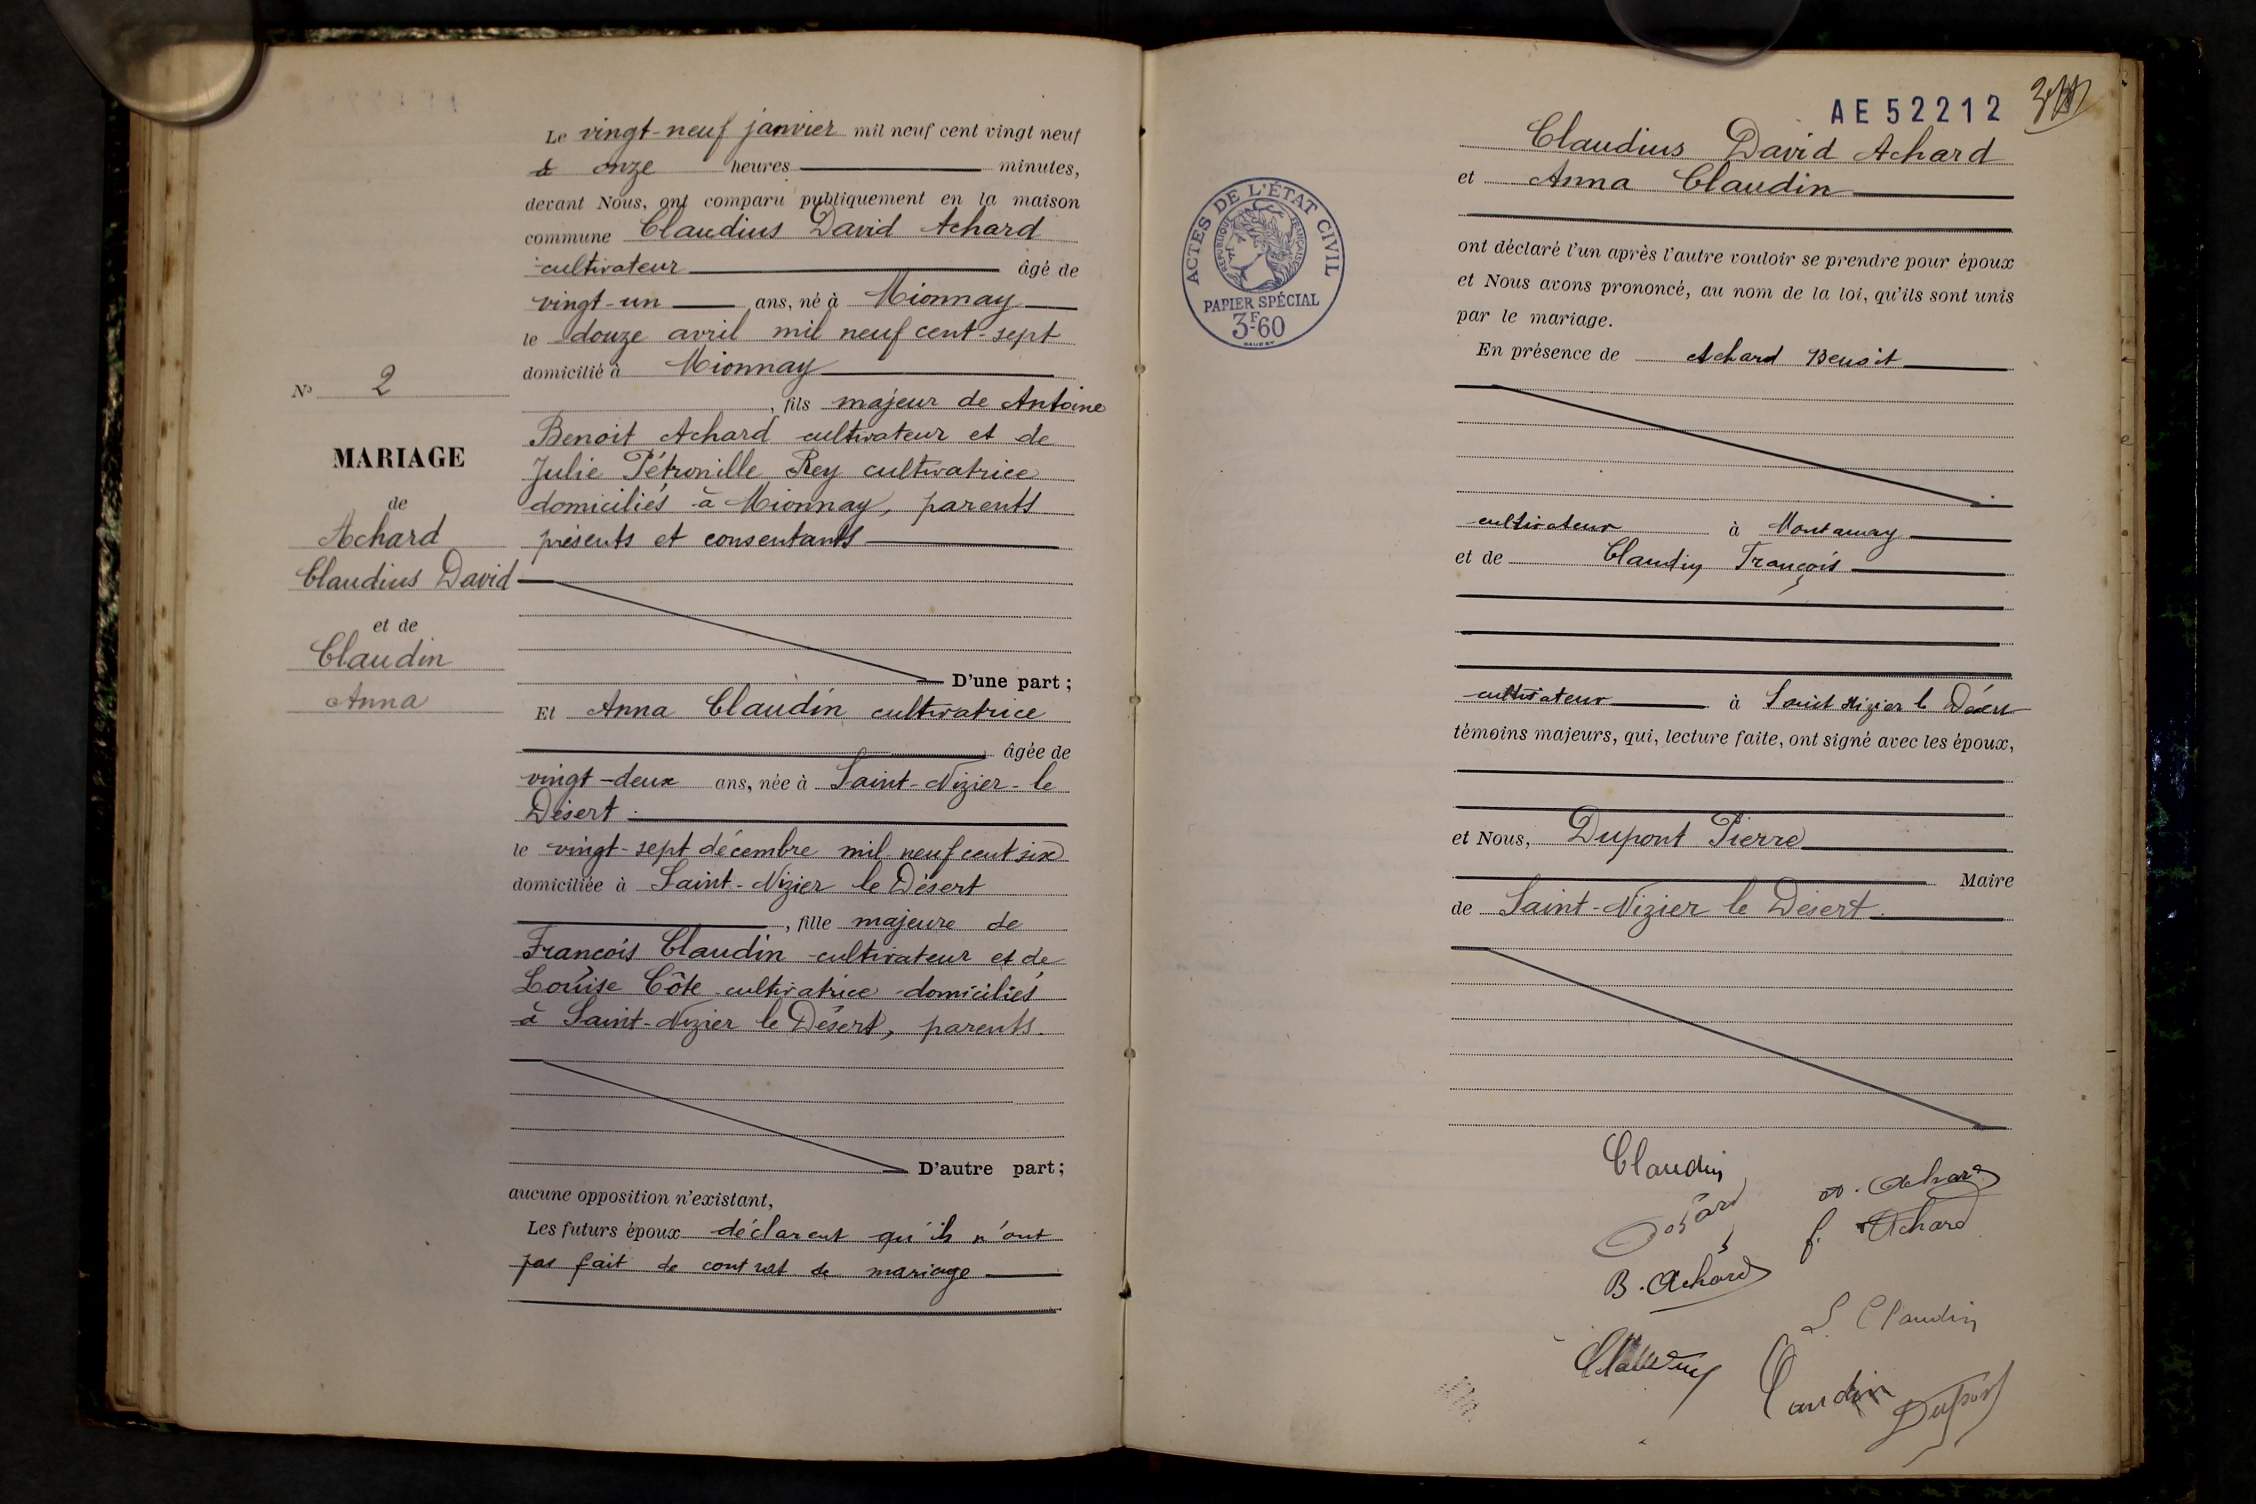 N° 2
MARIAGE
de
Achard
Claudius David
et de
Claudin
Anna
Le vingt-neuf janvier mil neuf cent vingt neuf
à onze heures minutes,
devant Nous, ont comparu publiquement en la maison
commune Claudius David Achard
cultivateur âgé de
vingt-un ans, né à Mionnay
le douze avril mil neuf cent-sept
domicilié à Mionnay
, fils majeur de Antoine
Benoit Achard cultivateur et de
Julie Pétronille Rey cultivatrice
domiciliés à Mionnay, parents
présents et consentants
D'une part;
Et Anna Claudin cultivatrice
âgée de
vingt-deux ans, née à Saint-Nizier-le
Désert.
le vingt-sept décembre mil neuf cent six
domiciliée à Saint-Nizier le Désert
, fille majeure de
François Claudin cultivateur et de
Louise Côte cultivatrice domiciliés
à Saint-Nizier le Désert, parents.
D'autre part;
aucune opposition n'existant,
Les futurs époux déclarent qu'ils n'ont
pas fait de contrat de mariage
AE 52212
ACTES DE L'ÉTAT CIVIL
RÉPUBLIQUE FRANÇAISE
PAPIER SPÉCIAL
3F.60
Claudius David Achard
et Anna Claudin
ont déclaré l'un après l'autre vouloir se prendre pour époux
et Nous avons prononcé, au nom de la loi, qu'ils sont unis
par le mariage.
En présence de Achard Benoit
cultivateur à Montanay
et de Claudin François
cultivateur à Saint Nizier le Désert
témoins majeurs, qui, lecture faite, ont signé avec les époux,
et Nous, Dupont Pierre
Maire
de Saint-Nizier le Désert.
Claudin
Achard
f. Achard
B. Achard
L. Claudin
Claudin
Dupont